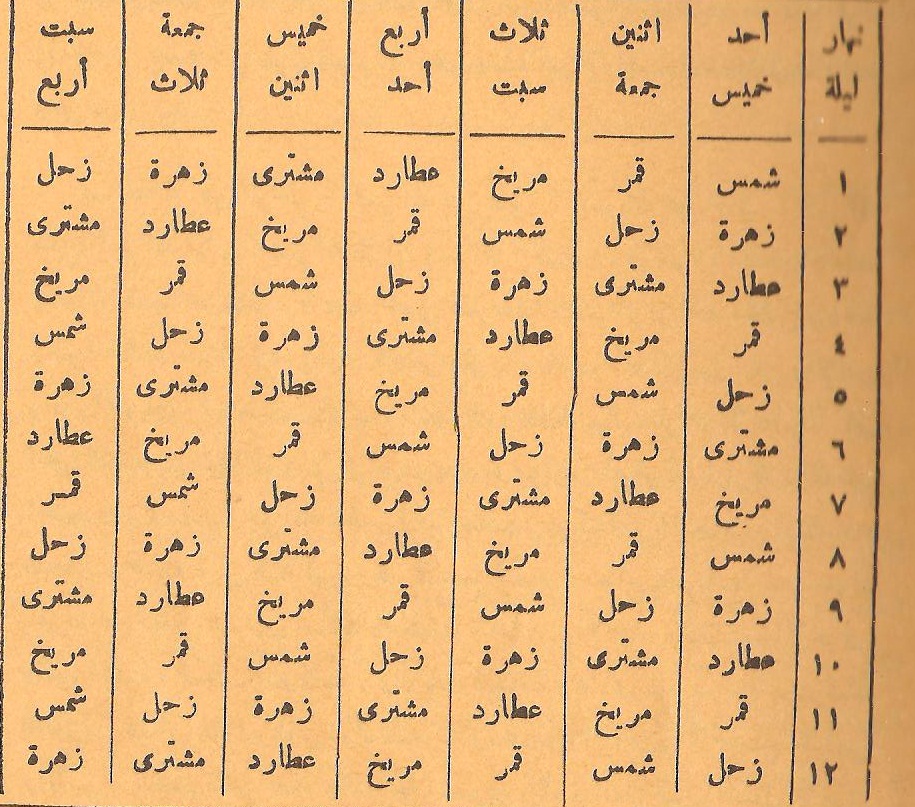 نهار أحد اثنين ثلاث أربع خميس جمعة سبت
ليلة خميس جمعة سبت أحد اثنين ثلاث أربع
١ شمس قمر مريخ عطارد مشترى زهرة زحل
٢ زهرة زحل شمس قمر مريخ عطارد مشترى
٣ عطارد مشترى زهرة زحل شمس قمر مريخ
٤ قمر مريخ عطارد مشترى زهرة زحل شمس
٥ زحل شمس قمر مريخ عطارد مشترى زهرة
٦ مشترى زهرة زحل شمس قمر مريخ عطارد
٧ مريخ عطارد مشترى زهرة زحل شمس قمر
٨ شمس قمر مريخ عطارد مشترى زهرة زحل
٩ زهرة زحل شمس قمر مريخ عطارد مشترى
١٠ عطارد مشترى زهرة زحل شمس قمر مريخ
١١ قمر مريخ عطارد مشترى زهرة زحل شمس
١٢ زحل شمس قمر مريخ عطارد مشترى زهرة